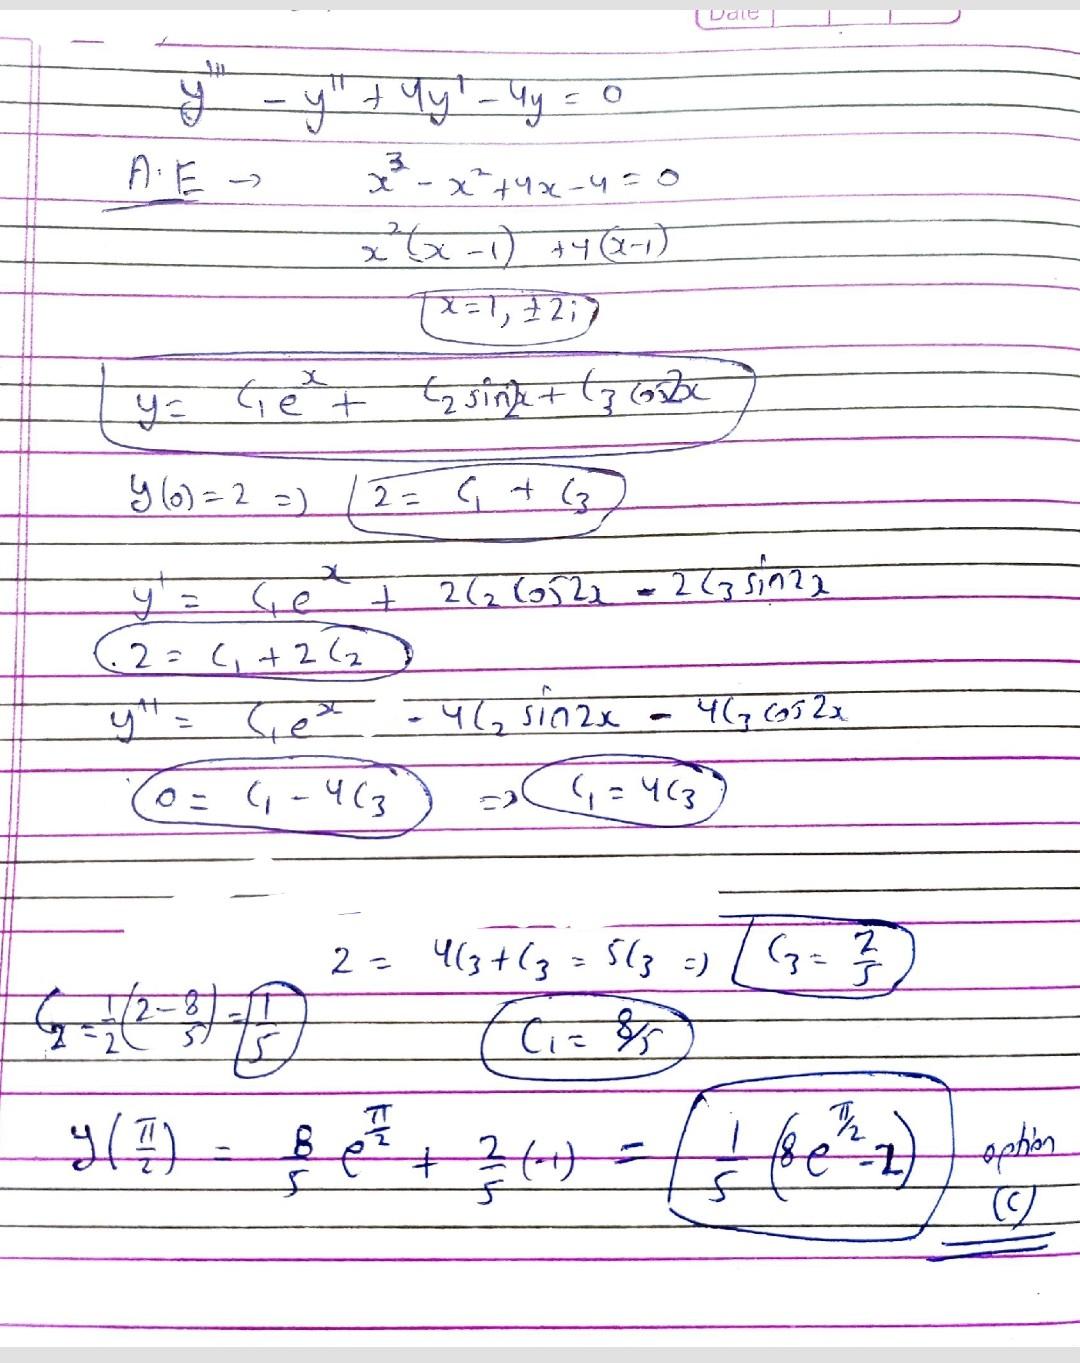 Date
y''' - y'' + 4y' - 4y = 0
A.E → x³ - x² + 4x - 4 = 0
x²(x - 1) + 4(x-1)
x = 1, ±2i
y = C₁eˣ + C₂ sin2x + C₃ cos2x
y(0) = 2 => 2 = C₁ + C₃
y' = C₁eˣ + 2C₂ cos2x - 2C₃ sin2x
2 = C₁ + 2C₂
y'' = C₁eˣ - 4C₂ sin2x - 4C₃ cos2x
0 = C₁ - 4C₃ => C₁ = 4C₃
2 = 4C₃ + C₃ = 5C₃ => C₃ = 2/5
C₂ = 1/2(2 - 8/5) = 1/5 C₁ = 8/5
y(π/2) = 8/5 e^(π/2) + 2/5 (-1) = 1/5 (8e^(π/2) - 2) option
(C)